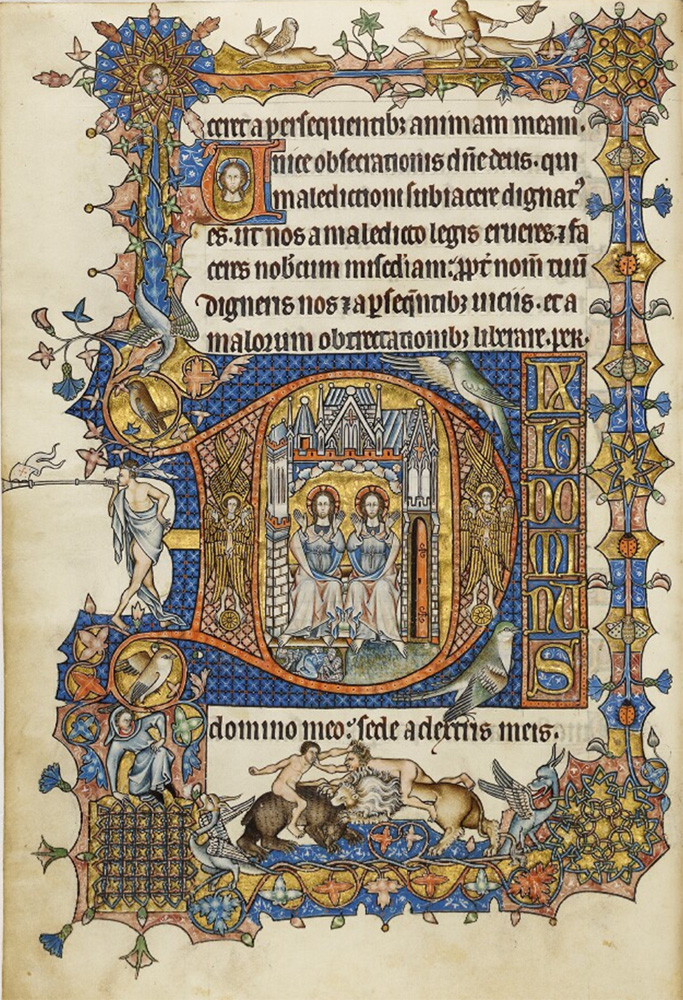 ceret a persequentibꝫ animam meam·
Unice obsecrationis dn̄e deus· qui
maledictioni subiacere dignatꝰ
es· ut nos a maledicto legis erueres ⁊ fa
ceres nob̄cum mis̄c̄diam: ꝓpt̄ nom̄ tuū
digneris nos ⁊ a ꝑseq̄ntibꝫ uiciis· et a
malorum obtrectationibꝫ liberare· per·
DIX
IT
DOM
INU
S
domino meo: sede a dextris meis·